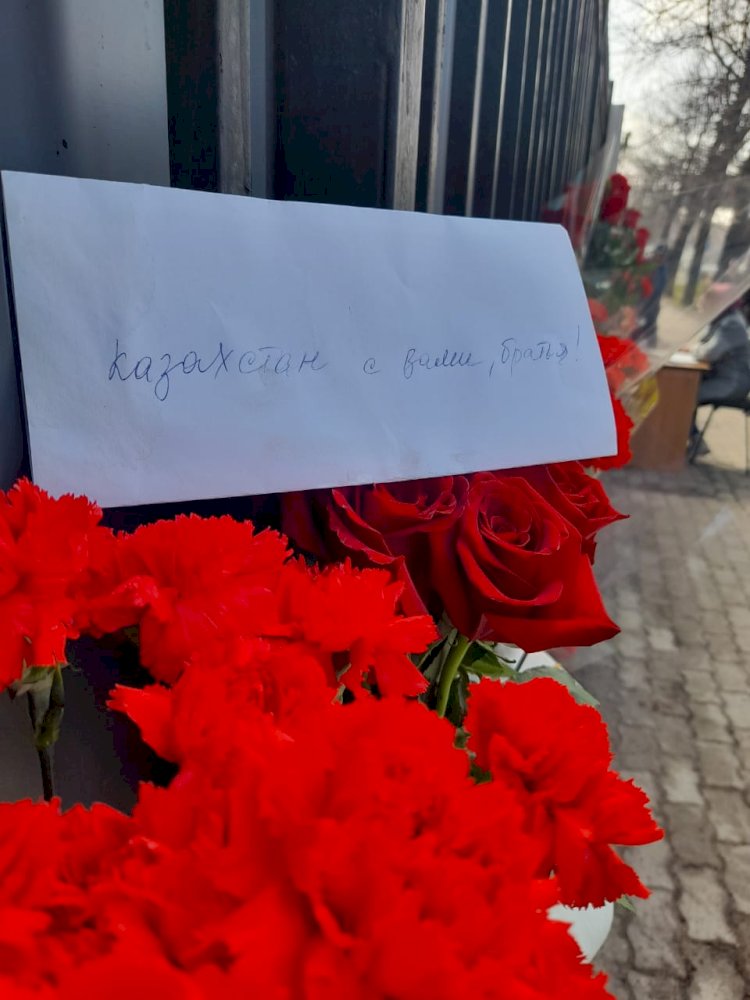 Казахстан с вами, братья!